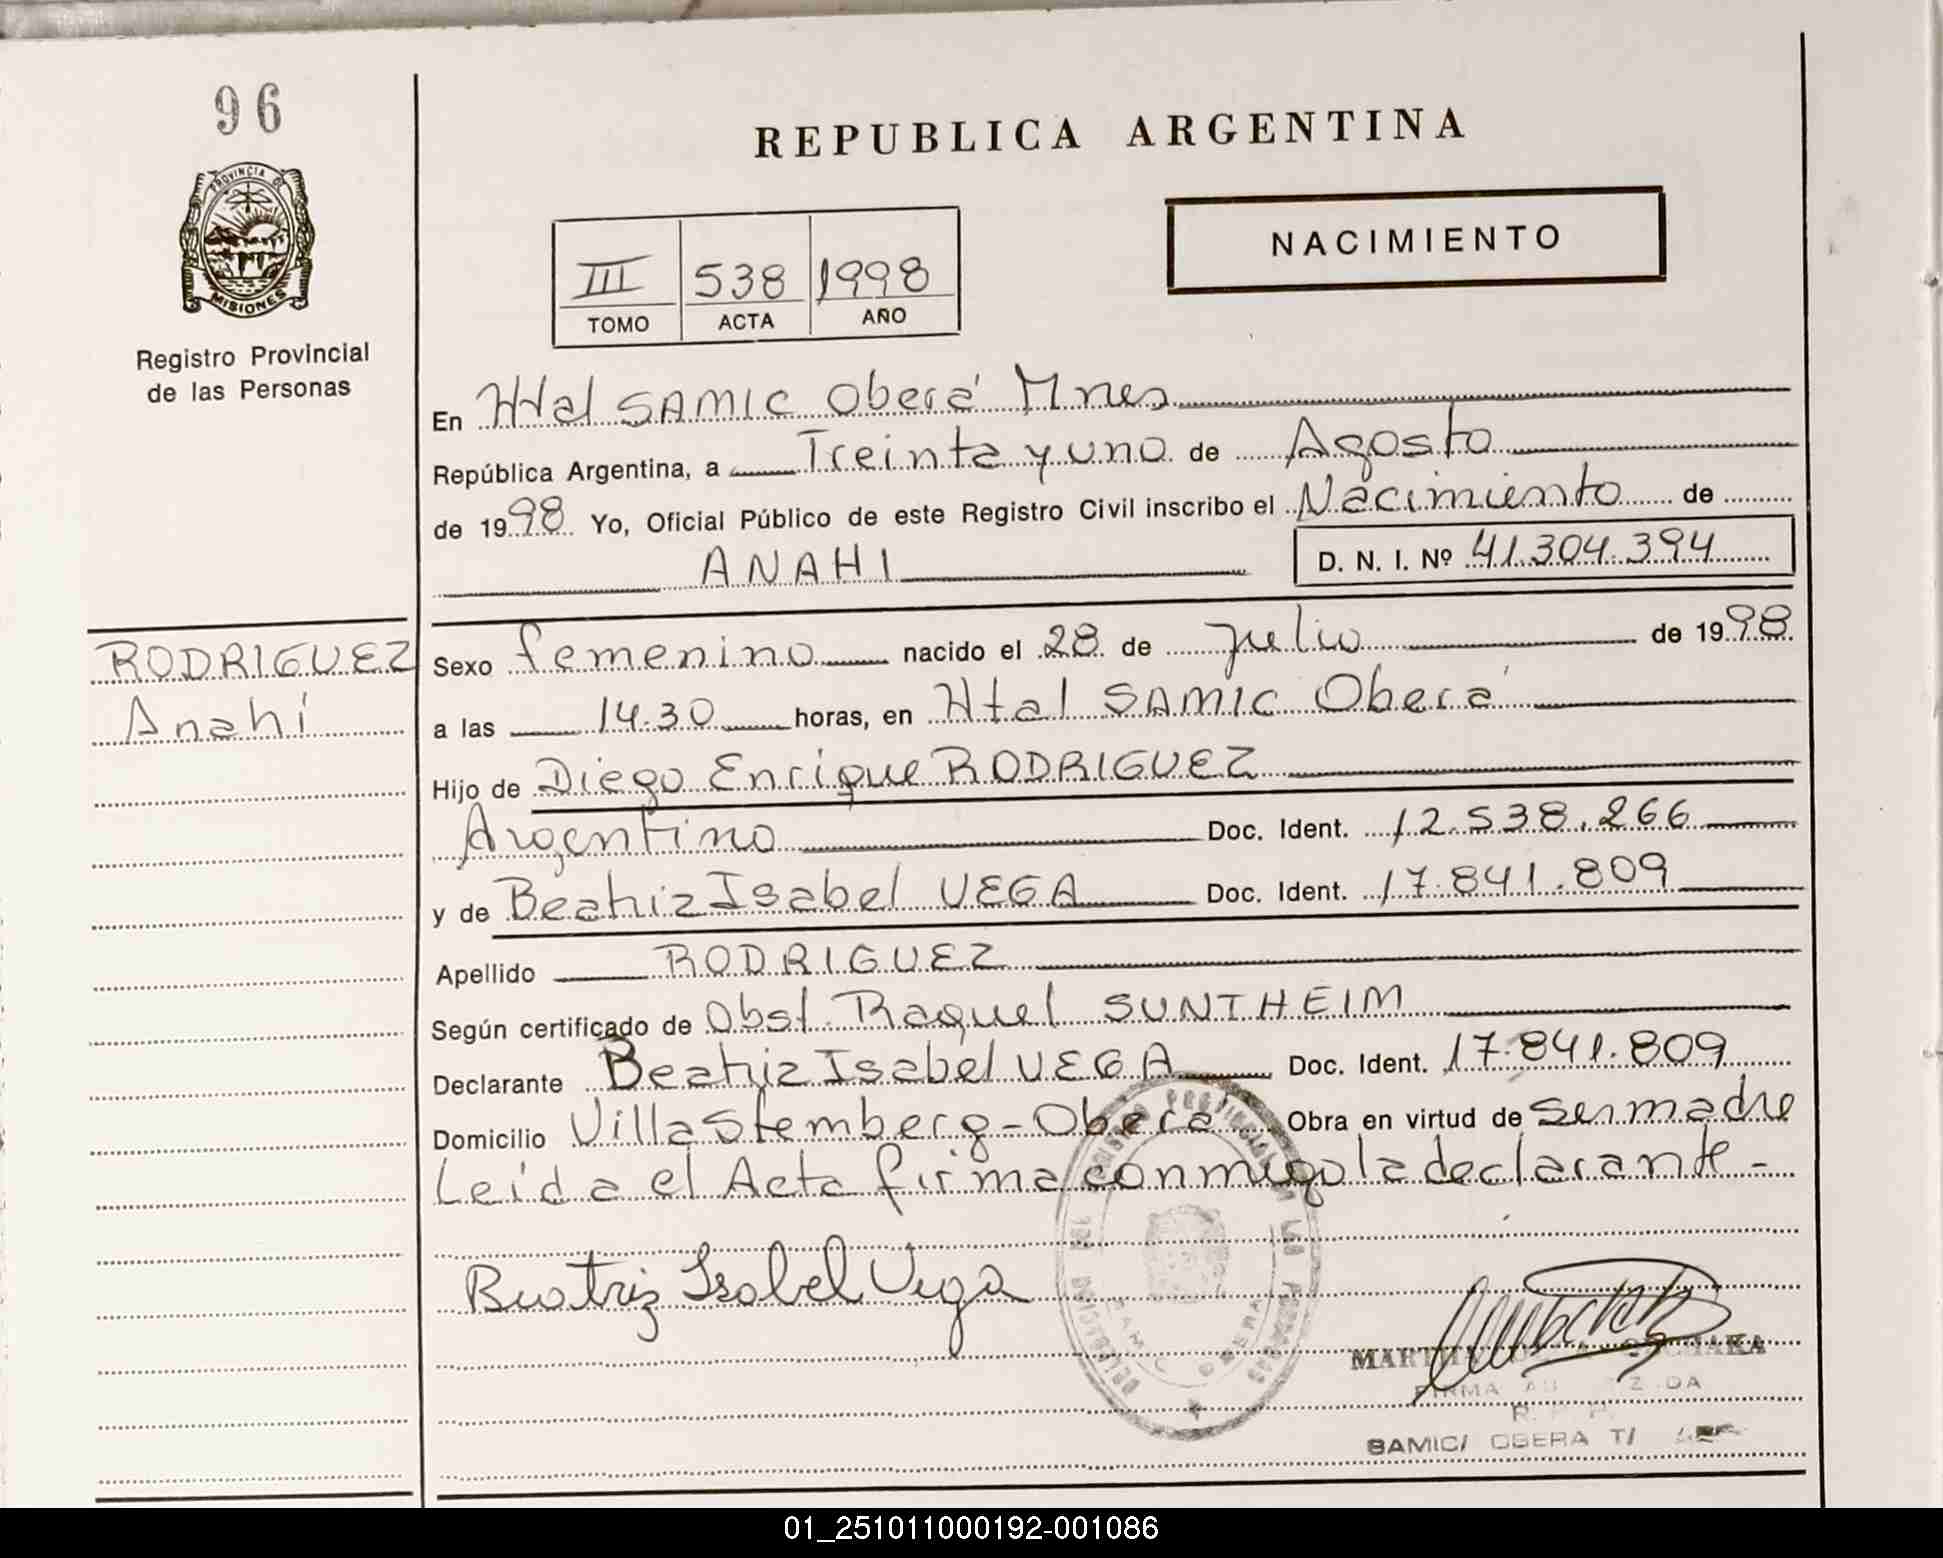 96
PROVINCIA DE
MISIONES
Registro Provincial
de las Personas
REPUBLICA ARGENTINA
NACIMIENTO
III 538 1998
TOMO ACTA AÑO
En Htal SAMIC Oberá Mnes
República Argentina, a Treinta y uno de Agosto
de 1998 Yo, Oficial Público de este Registro Civil inscribo el Nacimiento de
ANAHI D. N. I. Nº 41.304.394
RODRIGUEZ
Anahí
Sexo femenino nacido el 28 de julio de 1998
a las 14.30 horas, en Htal SAMIC Oberá
Hijo de Diego Enrique RODRIGUEZ
Argentino Doc. Ident. 12.538.266
y de Beatriz Isabel VEGA Doc. Ident. 17.841.809
Apellido RODRIGUEZ
Según certificado de Obst. Raquel SUNTHEIM
Declarante Beatriz Isabel VEGA Doc. Ident. 17.841.809
Domicilio Villa Stemberg - Oberá Obra en virtud de ser madre
Leída el Acta firma conmigo la declarante -
Beatriz Isabel Vega
FIRMA
SAMIC/ OBERA T/
01_251011000192-001086